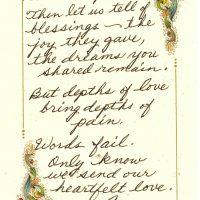 Then let us tell of
blessings — the
joy they gave,
the dreams you
shared remain.
But depths of love
bring depths of
pain.
Words fail.
Only know
we send our
heartfelt love.